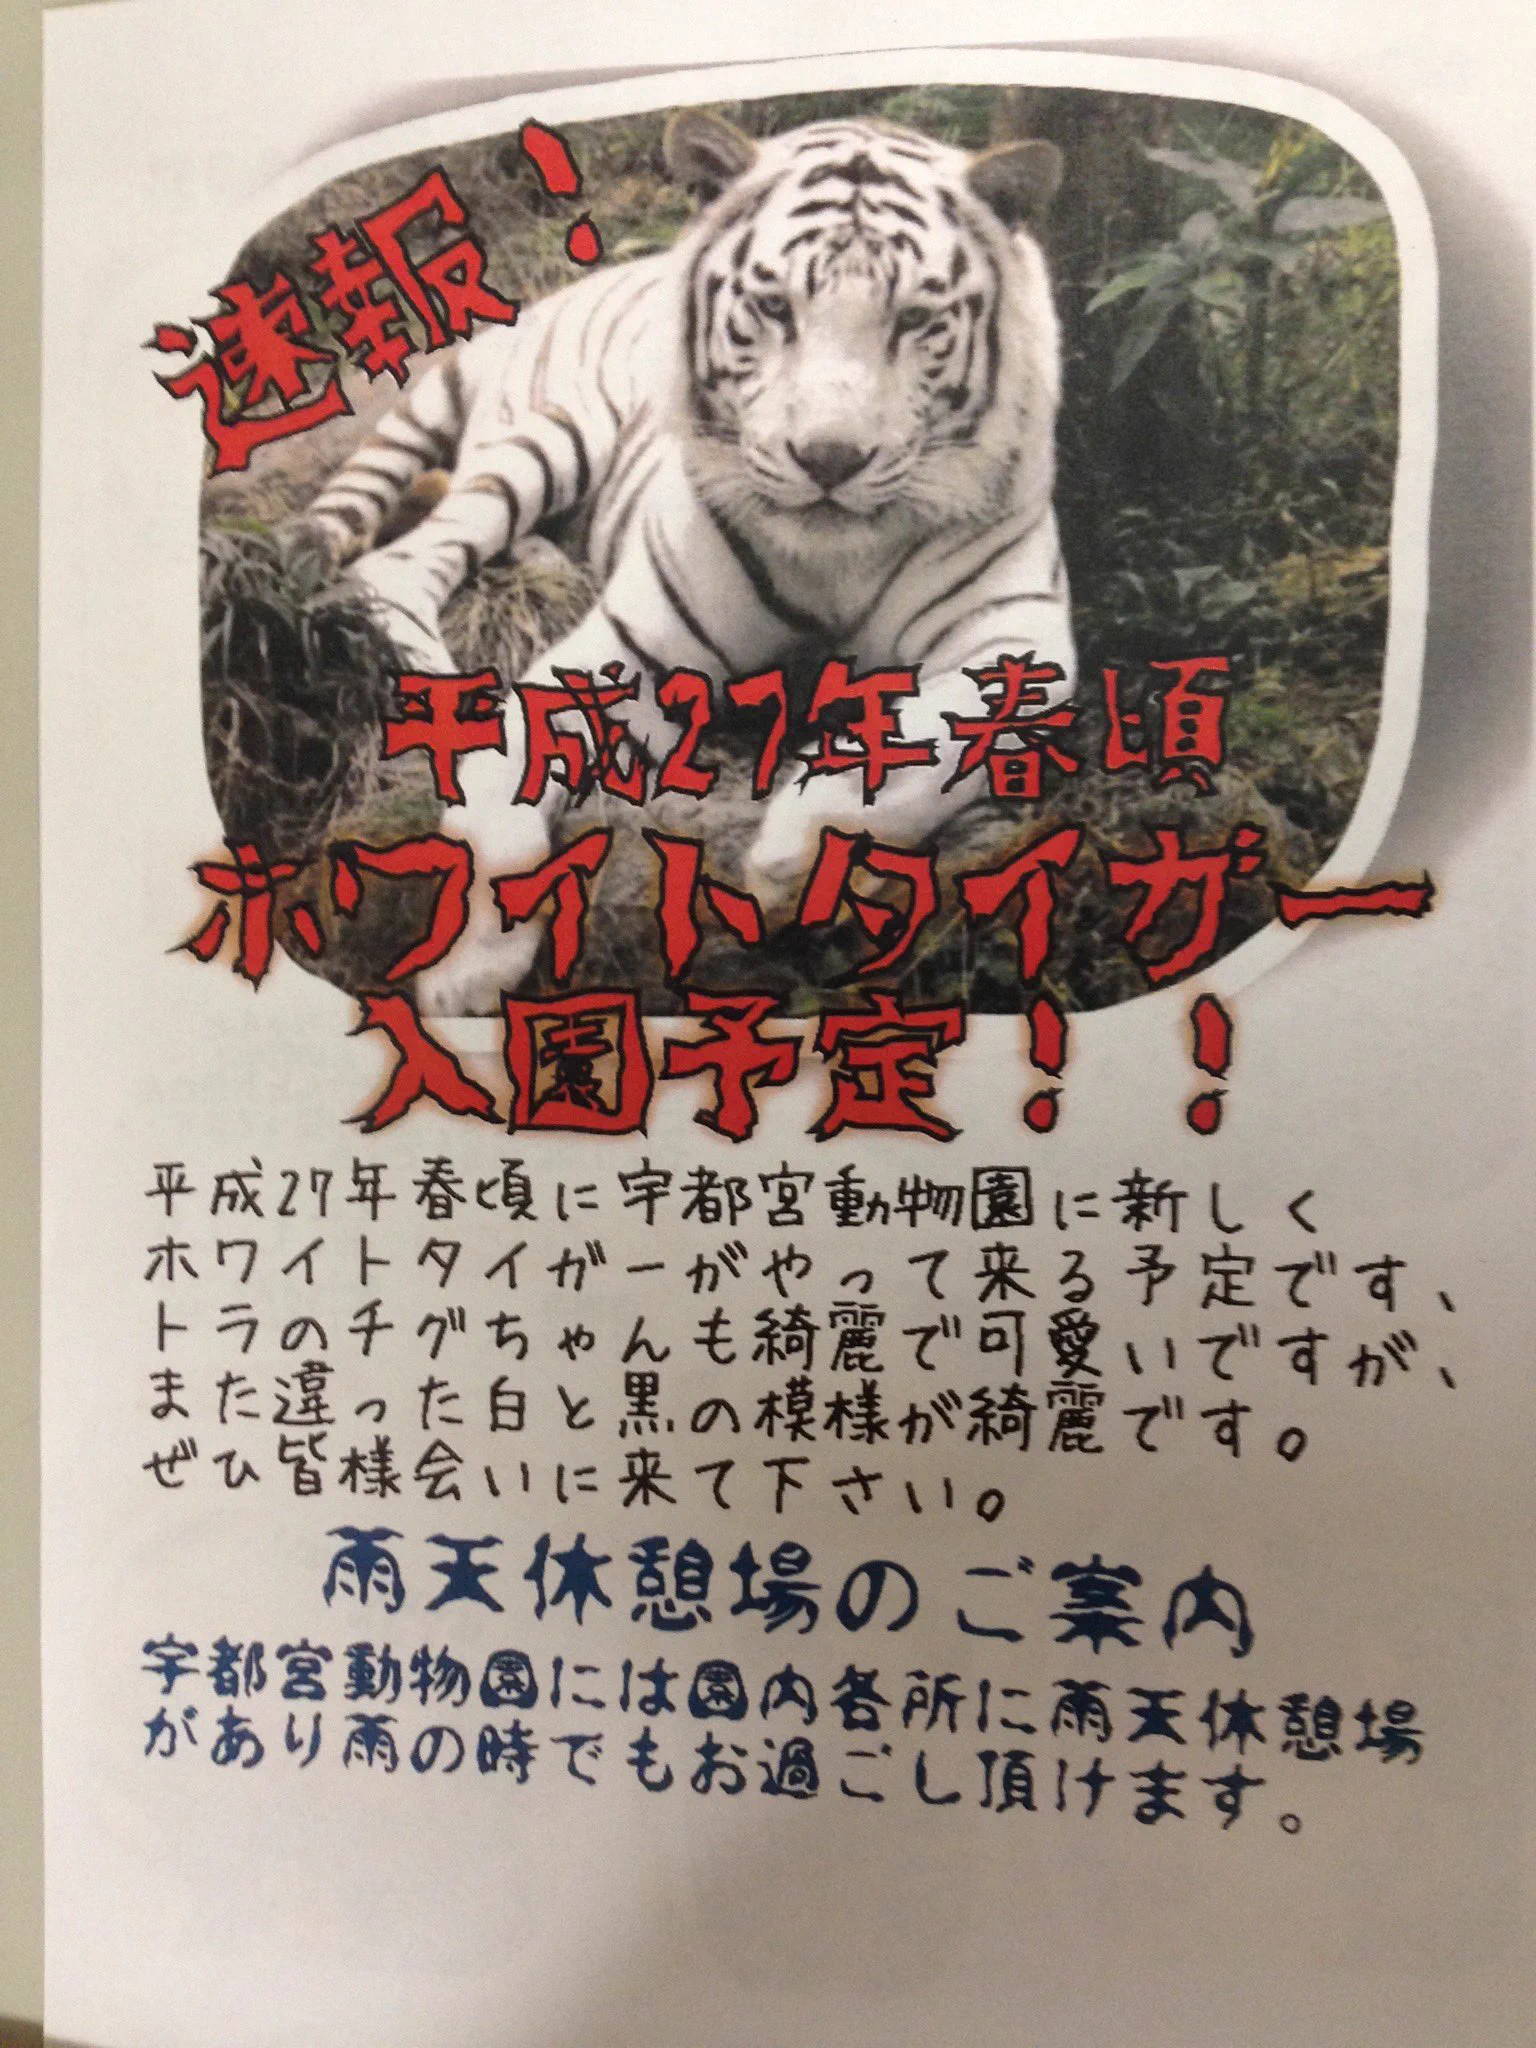 速報!
平成27年春頃
ホワイトタイガー
入園予定!!
平成27年春頃に宇都宮動物園に新しく
ホワイトタイガーがやって来る予定です、
トラのチグちゃんも綺麗で可愛いですが、
また違った白と黒の模様が綺麗です。
ぜひ皆様会いに来て下さい。
雨天休憩場のご案内
宇都宮動物園には園内各所に雨天休憩場
があり雨の時でもお過ごし頂けます。